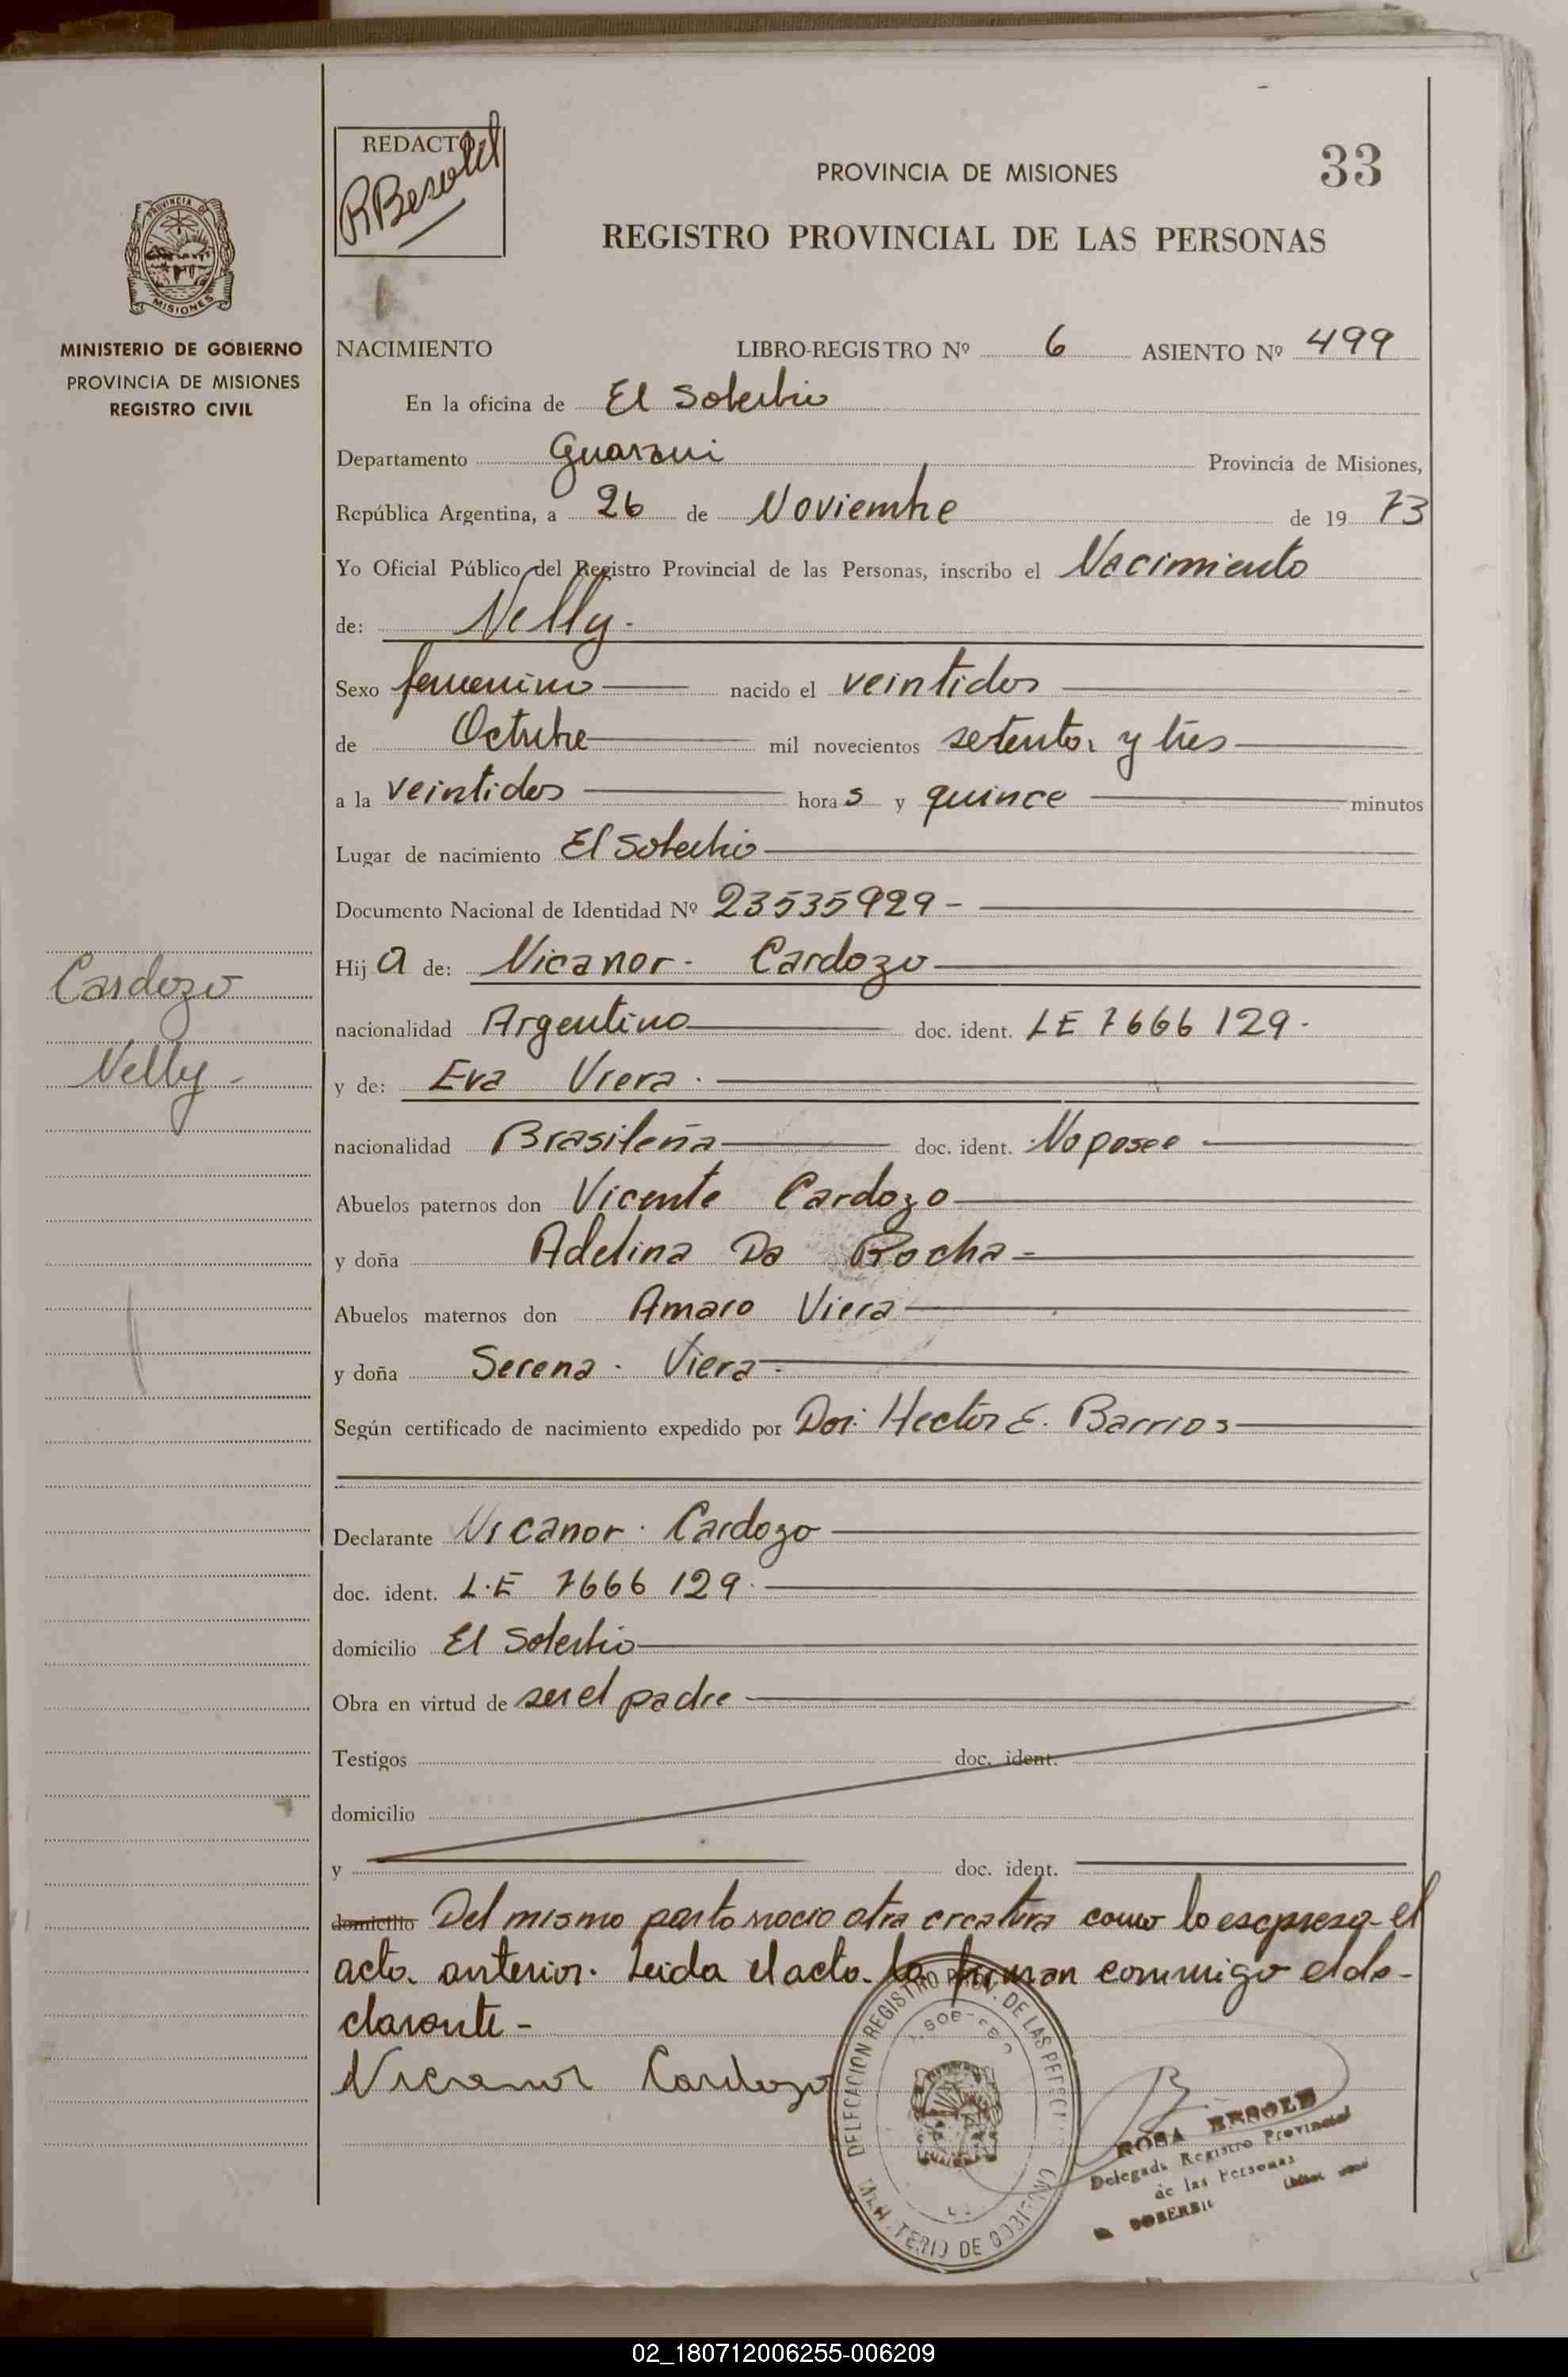 REDACTO
RBesold
PROVINCIA DE MISIONES
33
REGISTRO PROVINCIAL DE LAS PERSONAS
PROVINCIA DE
MISIONES
MINISTERIO DE GOBIERNO
PROVINCIA DE MISIONES
REGISTRO CIVIL
NACIMIENTO LIBRO-REGISTRO Nº 6 ASIENTO Nº 499
En la oficina de El Soberbio
Departamento Guarani Provincia de Misiones,
República Argentina, a 26 de Noviembre de 19 73
Yo Oficial Público del Registro Provincial de las Personas, inscribo el Nacimiento
de: Nelly.
Sexo femenino nacido el veintidos
de Octubre mil novecientos setenta y tres
a la veintidos hora s y quince minutos
Lugar de nacimiento El Soberbio
Documento Nacional de Identidad Nº 23535929 -
Hij a de: Nicanor - Cardozo
Cardozo
nacionalidad Argentino doc. ident. LE 7666 129 -
Nelly -
y de: Eva Viera .
nacionalidad Brasileña doc. ident. No posee
Abuelos paternos don Vicente Cardozo
y doña Adelina Da Rocha -
Abuelos maternos don Amaro Viera
y doña Serena . Viera .
Según certificado de nacimiento expedido por Don: Hector E. Barrios
Declarante Nicanor . Cardozo
doc. ident. L.E 7666 129 .
domicilio El Soberbio
Obra en virtud de ser el padre
Testigos doc. ident.
domicilio
y doc. ident.
domicilio Del mismo parto nacio otra creatura como lo escpresa el
acta anterior. Leida el acta la firman conmigo el de-
clarante -
Nicanor Cardozo
DELEGACION REGISTRO PROV. DE LAS PERSONAS
MINISTERIO DE GOBIERNO
ROSA BESOLD
Delegada Registro Provincial
de las Personas
SOBERBIO
02_180712006255-006209